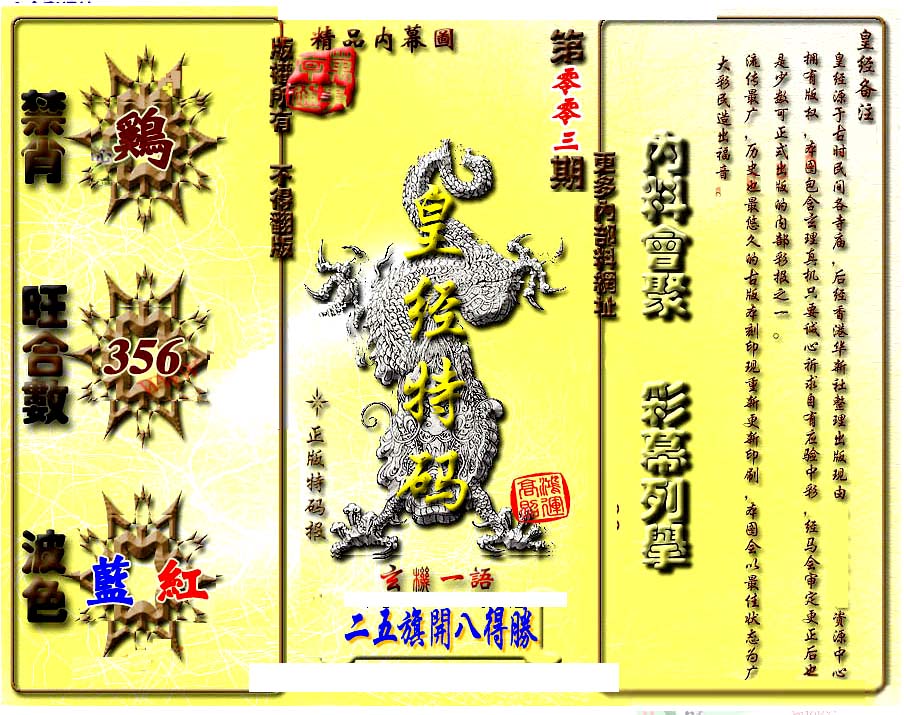 精品内幕圖
第零零三期
版權所有 不得翻版
更多内部料網址
禁肖
鷄
旺合數
356
波色
藍 紅
皇经特码
正版特码报
鴻運高照
玄機一語
二五旗開八得勝
内料會聚
彩幕列舉
皇经备注
皇经源于古时民间各寺庙,后经香港华新社整理出版现由 资源中心
拥有版权,本图包含玄理真机只要诚心祈求自有应验中彩,经马会审定更正后也
是少数可正式出版的内部彩报之一。
流传最广,历史也最悠久的古版本刻印现重新更新印刷,本图会以最佳状态为广
大彩民造出福音